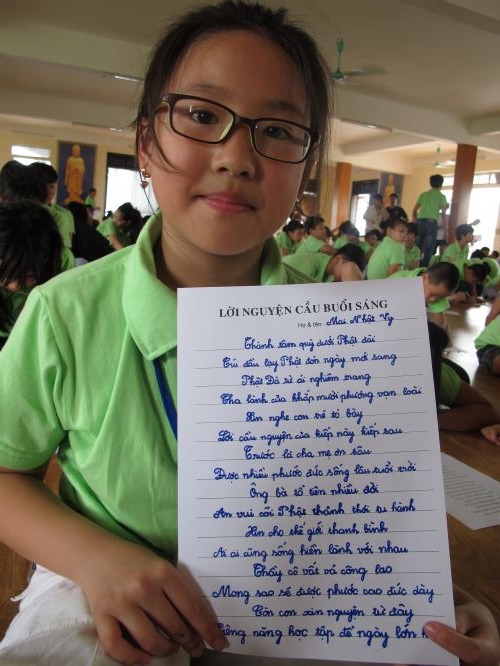 LỜI NGUYỆN CẦU BUỔI SÁNG
Họ & tên Mai Nhật Vy
Thành tâm quỳ dưới Phật đài
Cúi đầu lạy Phật đón ngày mới sang
Phật Đà từ ái nghiêm trang
Cha lành của khắp mười phương vạn loài
Xin nghe con trẻ tỏ bày
Lời cầu nguyện của kiếp này kiếp sau
Trước là cha mẹ ơn sâu
Được nhiều phước đức sống lâu suốt đời
Ông bà tổ tiên nhiều đời
An vui cõi Phật thảnh thơi tu hành
Xin cho thế giới thanh bình
Ai ai cũng sống hiền lành với nhau
Thầy cô vất vả công lao
Mong sao sẽ được phước cao đức dày
Còn con xin nguyện từ đây
Siêng năng học tập để ngày lớn